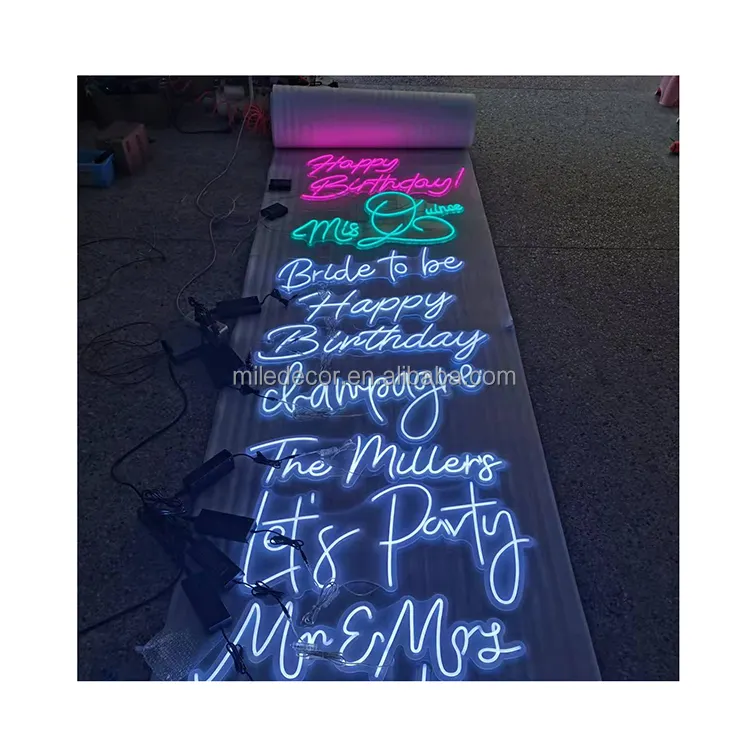 Happy
Birthday!
Mis Quince
Bride to be
Happy
Birthday
miledecor.en.alibaba.com
champagne
The Millers
Let's Party
Mr & Mrs